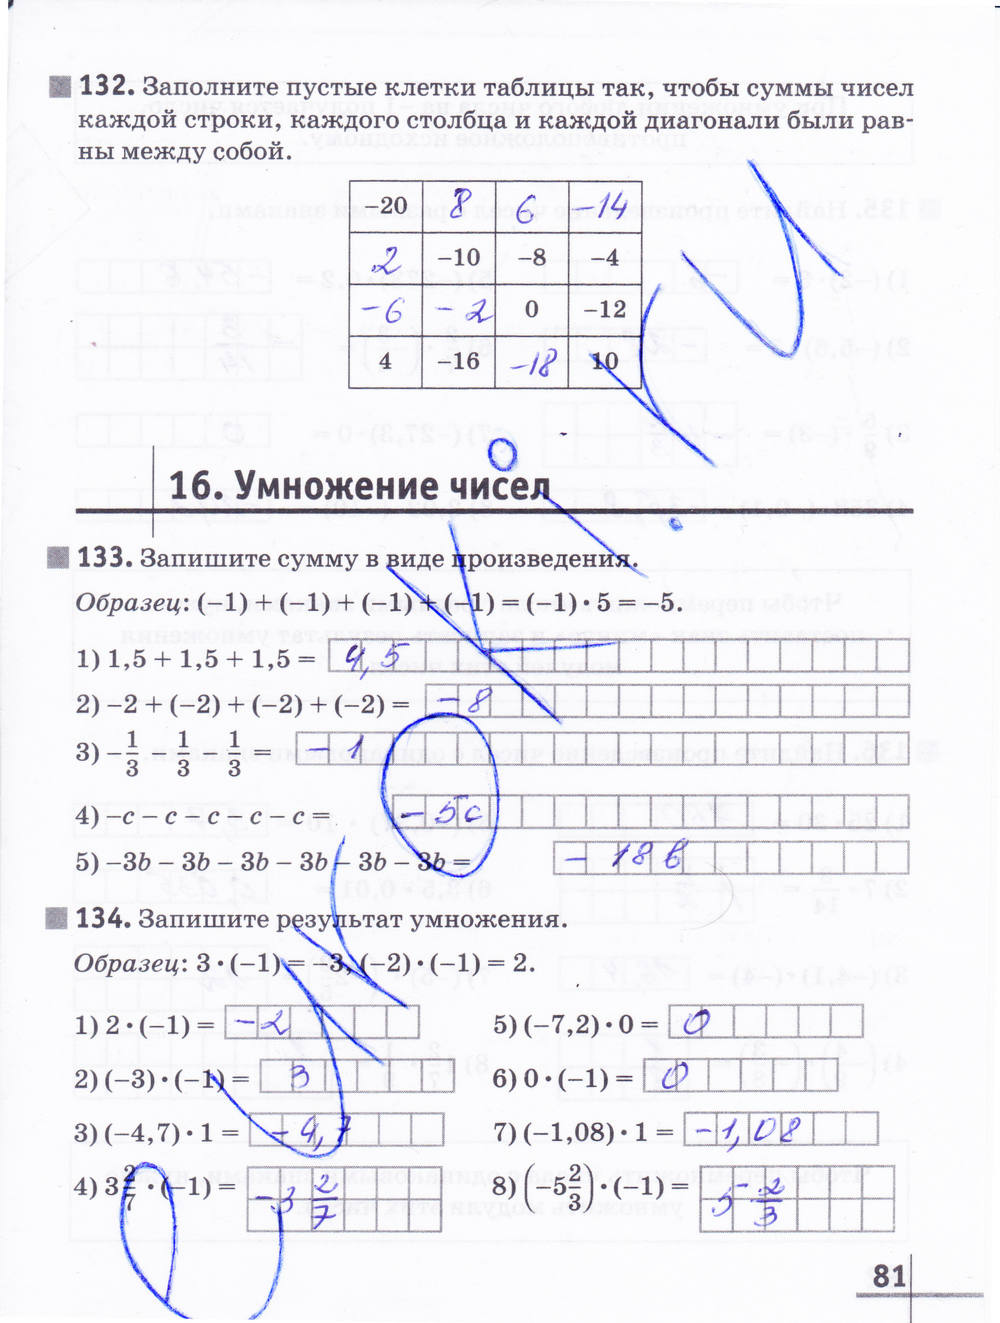 132. Заполните пустые клетки таблицы так, чтобы суммы чисел
каждой строки, каждого столбца и каждой диагонали были рав-
ны между собой.
-20 8 6 -14
2 -10 -8 -4
-6 -2 0 -12
4 -16 -18 10
16. Умножение чисел
133. Запишите сумму в виде произведения.
Образец: (-1) + (-1) + (-1) + (-1) + (-1) = (-1) · 5 = -5.
1) 1,5 + 1,5 + 1,5 = 4,5
2) -2 + (-2) + (-2) + (-2) = -8
3) -1/3 - 1/3 - 1/3 = -1
4) -c - c - c - c - c = -5c
5) -3b - 3b - 3b - 3b - 3b - 3b = -18b
134. Запишите результат умножения.
Образец: 3 · (-1) = -3, (-2) · (-1) = 2.
1) 2 · (-1) = -2
5) (-7,2) · 0 = 0
2) (-3) · (-1) = 3
6) 0 · (-1) = 0
3) (-4,7) · 1 = -4,7
7) (-1,08) · 1 = -1,08
4) 3 2/7 · (-1) = -3 2/7
8) (-5 2/3) · (-1) = 5 2/3
81